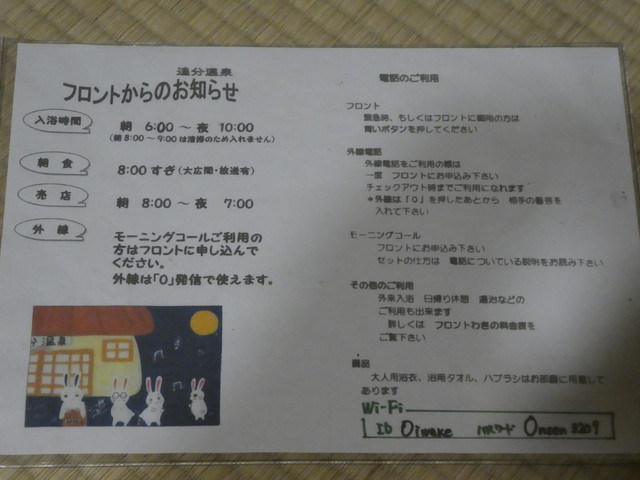 追分温泉
フロントからのお知らせ
入浴時間
朝 6:00 ～ 夜 10:00
(朝 8:00 ～ 9:00 は清掃のため入れません)
朝食
8:00 すぎ (大広間・放送有)
売店
朝 8:00 ～ 夜 7:00
外線
モーニングコールご利用の
方はフロントに申し込んで
ください。
外線は「0」発信で使えます。
温泉
電話のご利用
フロント
緊急時、もしくはフロントに御用の方は
青いボタンを押してください
外線電話
外線電話をご利用の際は
一度 フロントにお申込み下さい
チェックアウト時までご利用になれます
＊外線は「0」を押したあとから 相手の番号を
入れて下さい
モーニングコール
フロントにお申込み下さい
セットの仕方は 電話についている説明をお読み下さい
その他のご利用
外来入浴 日帰り休憩 湯治などの
ご利用も出来ます
詳しくは フロントわきの料金表を
ご覧下さい
備品
大人用浴衣、浴用タオル、ハブラシはお部屋に用意して
あります
Wi-Fi
ID Oiwake パスワード Onsen 3209